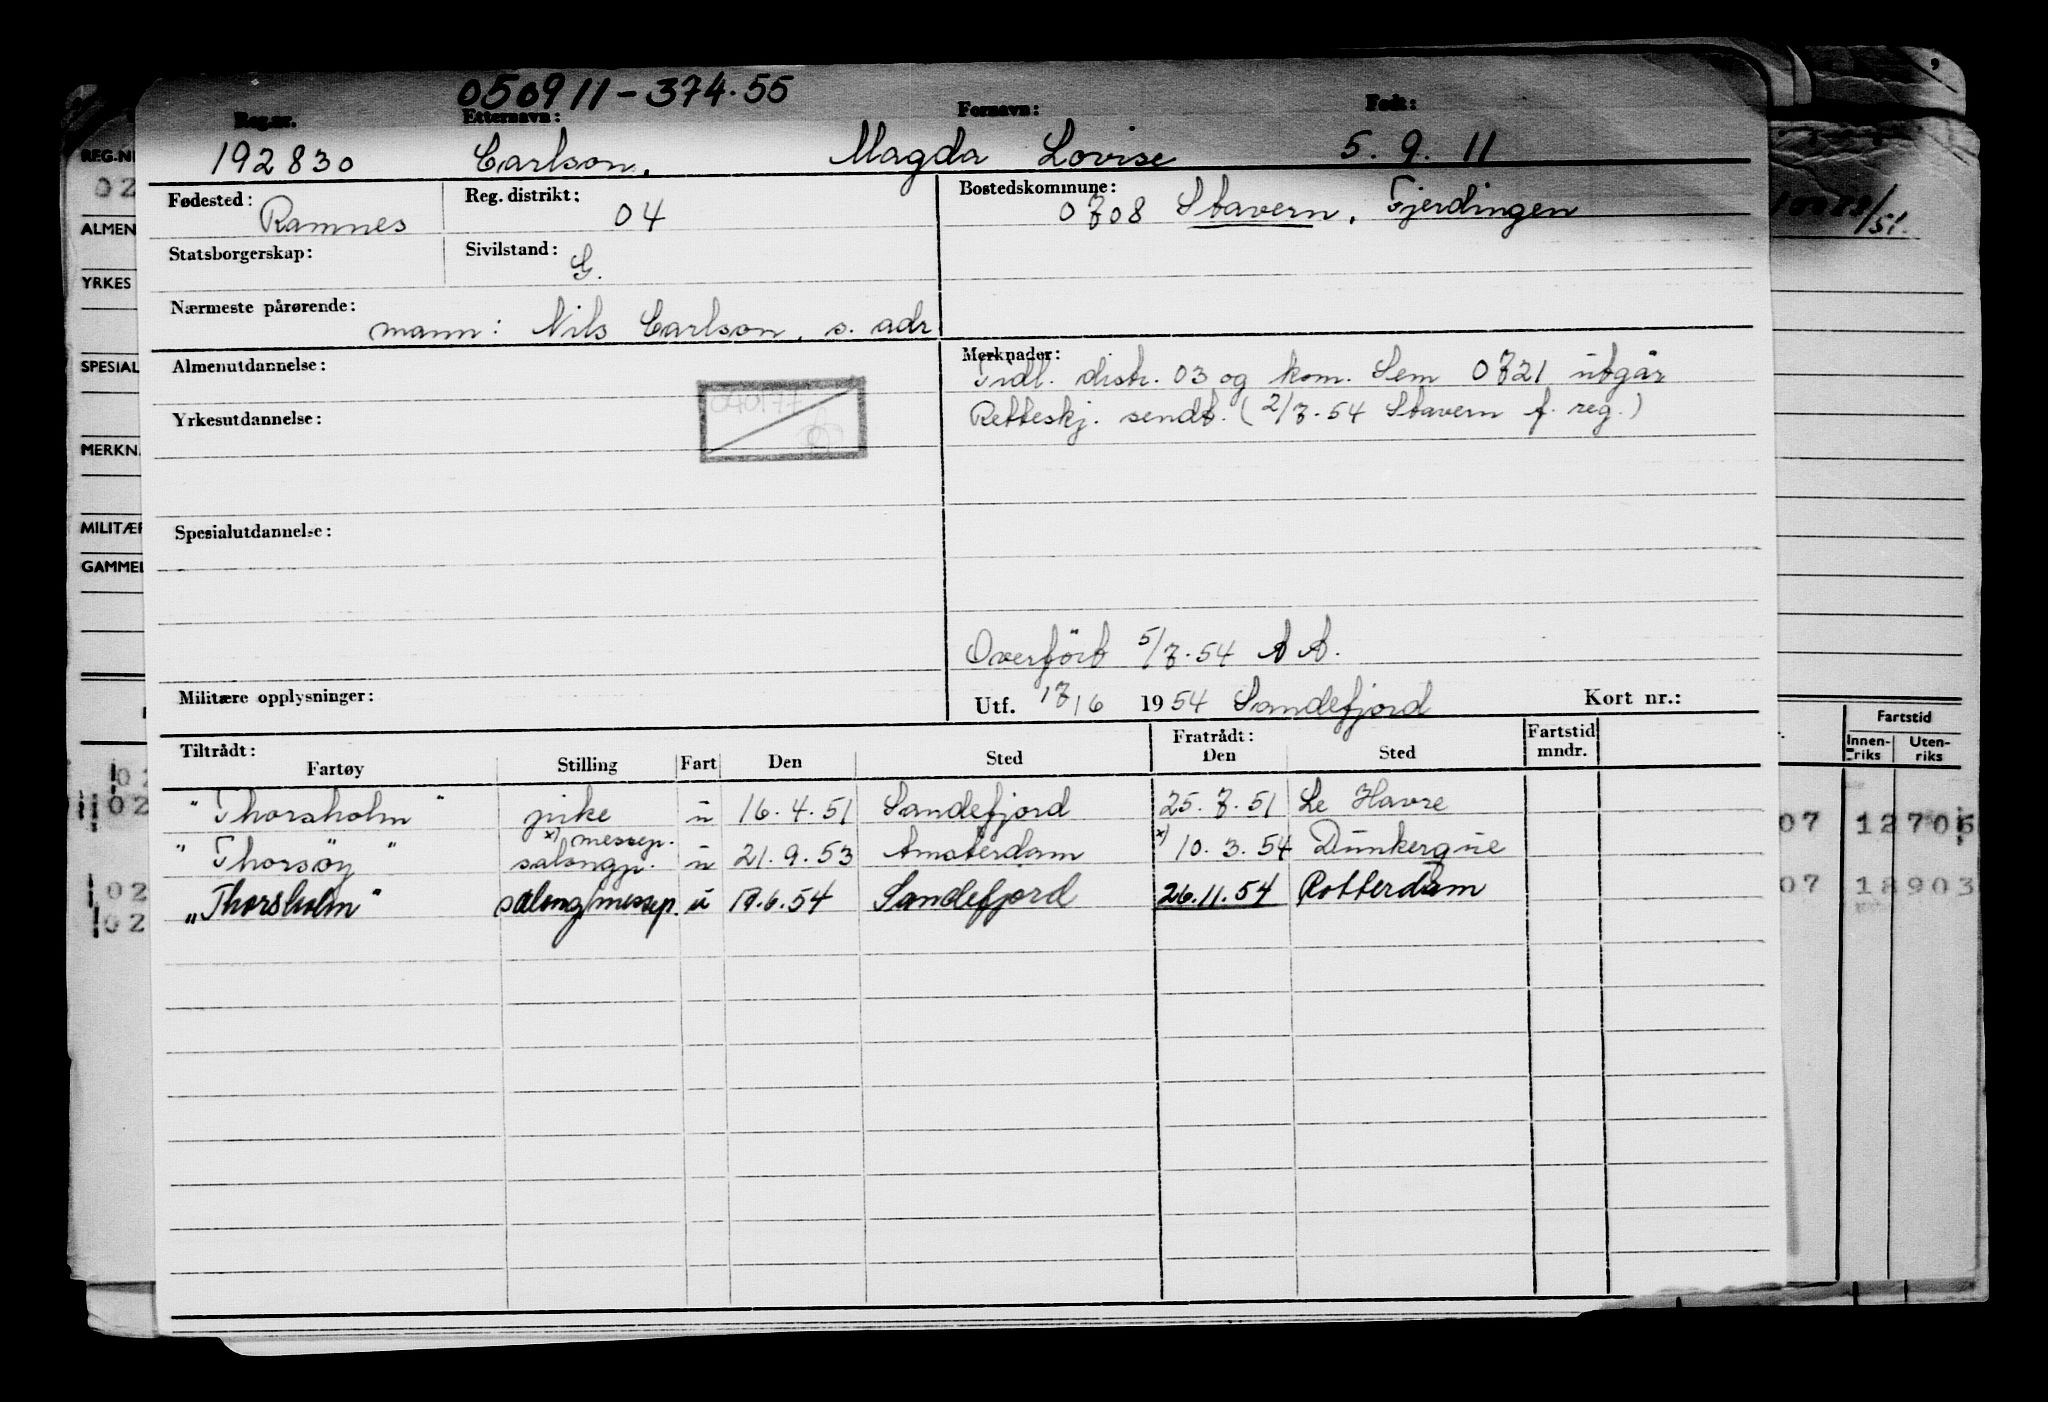 050911-374.55
Reg.nr. Etternavn: Fornavn: Født:
192830 Carlson, Magda Lovise 5. 9. 11
Fødested: Ramnes Reg. distrikt: 04 Bostedskommune: 0708 Stavern, Fjerdingen
Statsborgerskap: Sivilstand: G.
Nærmeste pårørende: mann: Nils Carlson, s. adr
Almenutdannelse: Merknader: Tidl. distr. 03 og kom. Sem 0721 utgår
Yrkesutdannelse: Retteskj. sendt. (2/7-54 Stavern f. reg.)
Spesialutdannelse:
Overført 5/7-54 A A.
Militære opplysninger: Utf. 17/6 1954 Sandefjord Kort nr.:
Tiltrådt: Fratrådt: Fartstid
Fartøy Stilling Fart Den Sted Den Sted mndr.
"Thorsholm" pike u 16.4.51 Sandefjord 25.7.51 Le Havre
x) messep.
"Thorsøy" salongp. u 21.9.53 Amsterdam x) 10.3.54 Dunkerque
"Thorsholm" salong/messep. u 17.6.54 Sandefjord 26.11.54 Rotterdam
REG.NR
02
ALMEN
YRKES
SPESIAL
MERKN.
MILITÆR
GAMMEL
02
02
02
02
/51.
Fartstid
Innen-riks Uten-riks
07 12705
07 18903